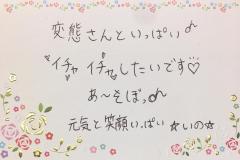 変態さんといっぱい♪
"イチャイチャ"したいです♡
あ〜そぼっ♪
元気と笑顔いっぱい ☆いの☆